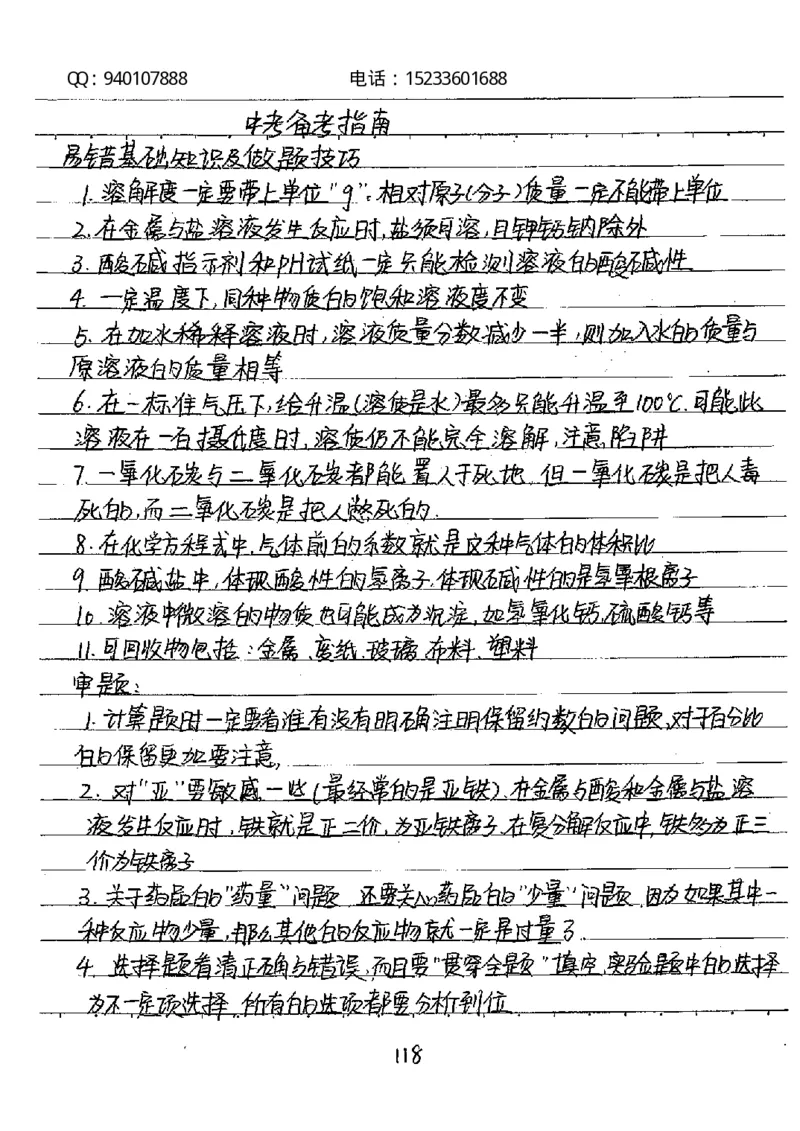 QQ：940107888 电话：15233601688
中考备考指南
易错基础知识及做题技巧
1. 溶解度一定要带上单位"g"；相对原子(分子)质量一定不能带上单位
2. 在金属与盐溶液发生反应时,盐须可溶,且钾钙钠除外
3. 酸碱指示剂和PH试纸一定只能检测溶液的酸碱性
4. 一定温度下,同种物质的饱和溶液度不变
5. 在加水稀释溶液时,溶液质量分数减少一半,则加入水的质量与
原溶液的质量相等
6. 在一标准气压下,给升温(溶质是水)最多只能升温至100℃.可能此
溶液在一百摄氏度时,溶质仍不能完全溶解,注意陷阱
7. 一氧化碳与二氧化碳都能置人于死地.但一氧化碳是把人毒
死的,而二氧化碳是把人憋死的.
8. 在化学方程式中,气体前的系数就是这种气体的体积比
9. 酸碱盐中,体现酸性的氢离子.体现碱性的是氢氧根离子
10. 溶液中微溶的物质也可能成为沉淀,如氢氧化钙,硫酸钙等
11. 可回收物包括：金属、废纸、玻璃、布料、塑料
审题：
1. 计算题时一定要看准有没有明确注明保留约数的问题,对于百分比
的保留更加要注意,
2. 对"亚"要敏感一些(最经常的是亚铁).在金属与酸和金属与盐溶
液发生反应时,铁就是正二价,为亚铁离子.在复分解反应中,铁多为正三
价为铁离子
3. 关于药品的"药量"问题 还要关心药品的"少量"问题 因为如果其中一
种反应物少量,那么其他的反应物就一定是过量了.
4. 选择题看清正确与错误,而且要"贯穿全题"填空,实验题中的选择
为不一定项选择.所有的选项都要分析到位
118